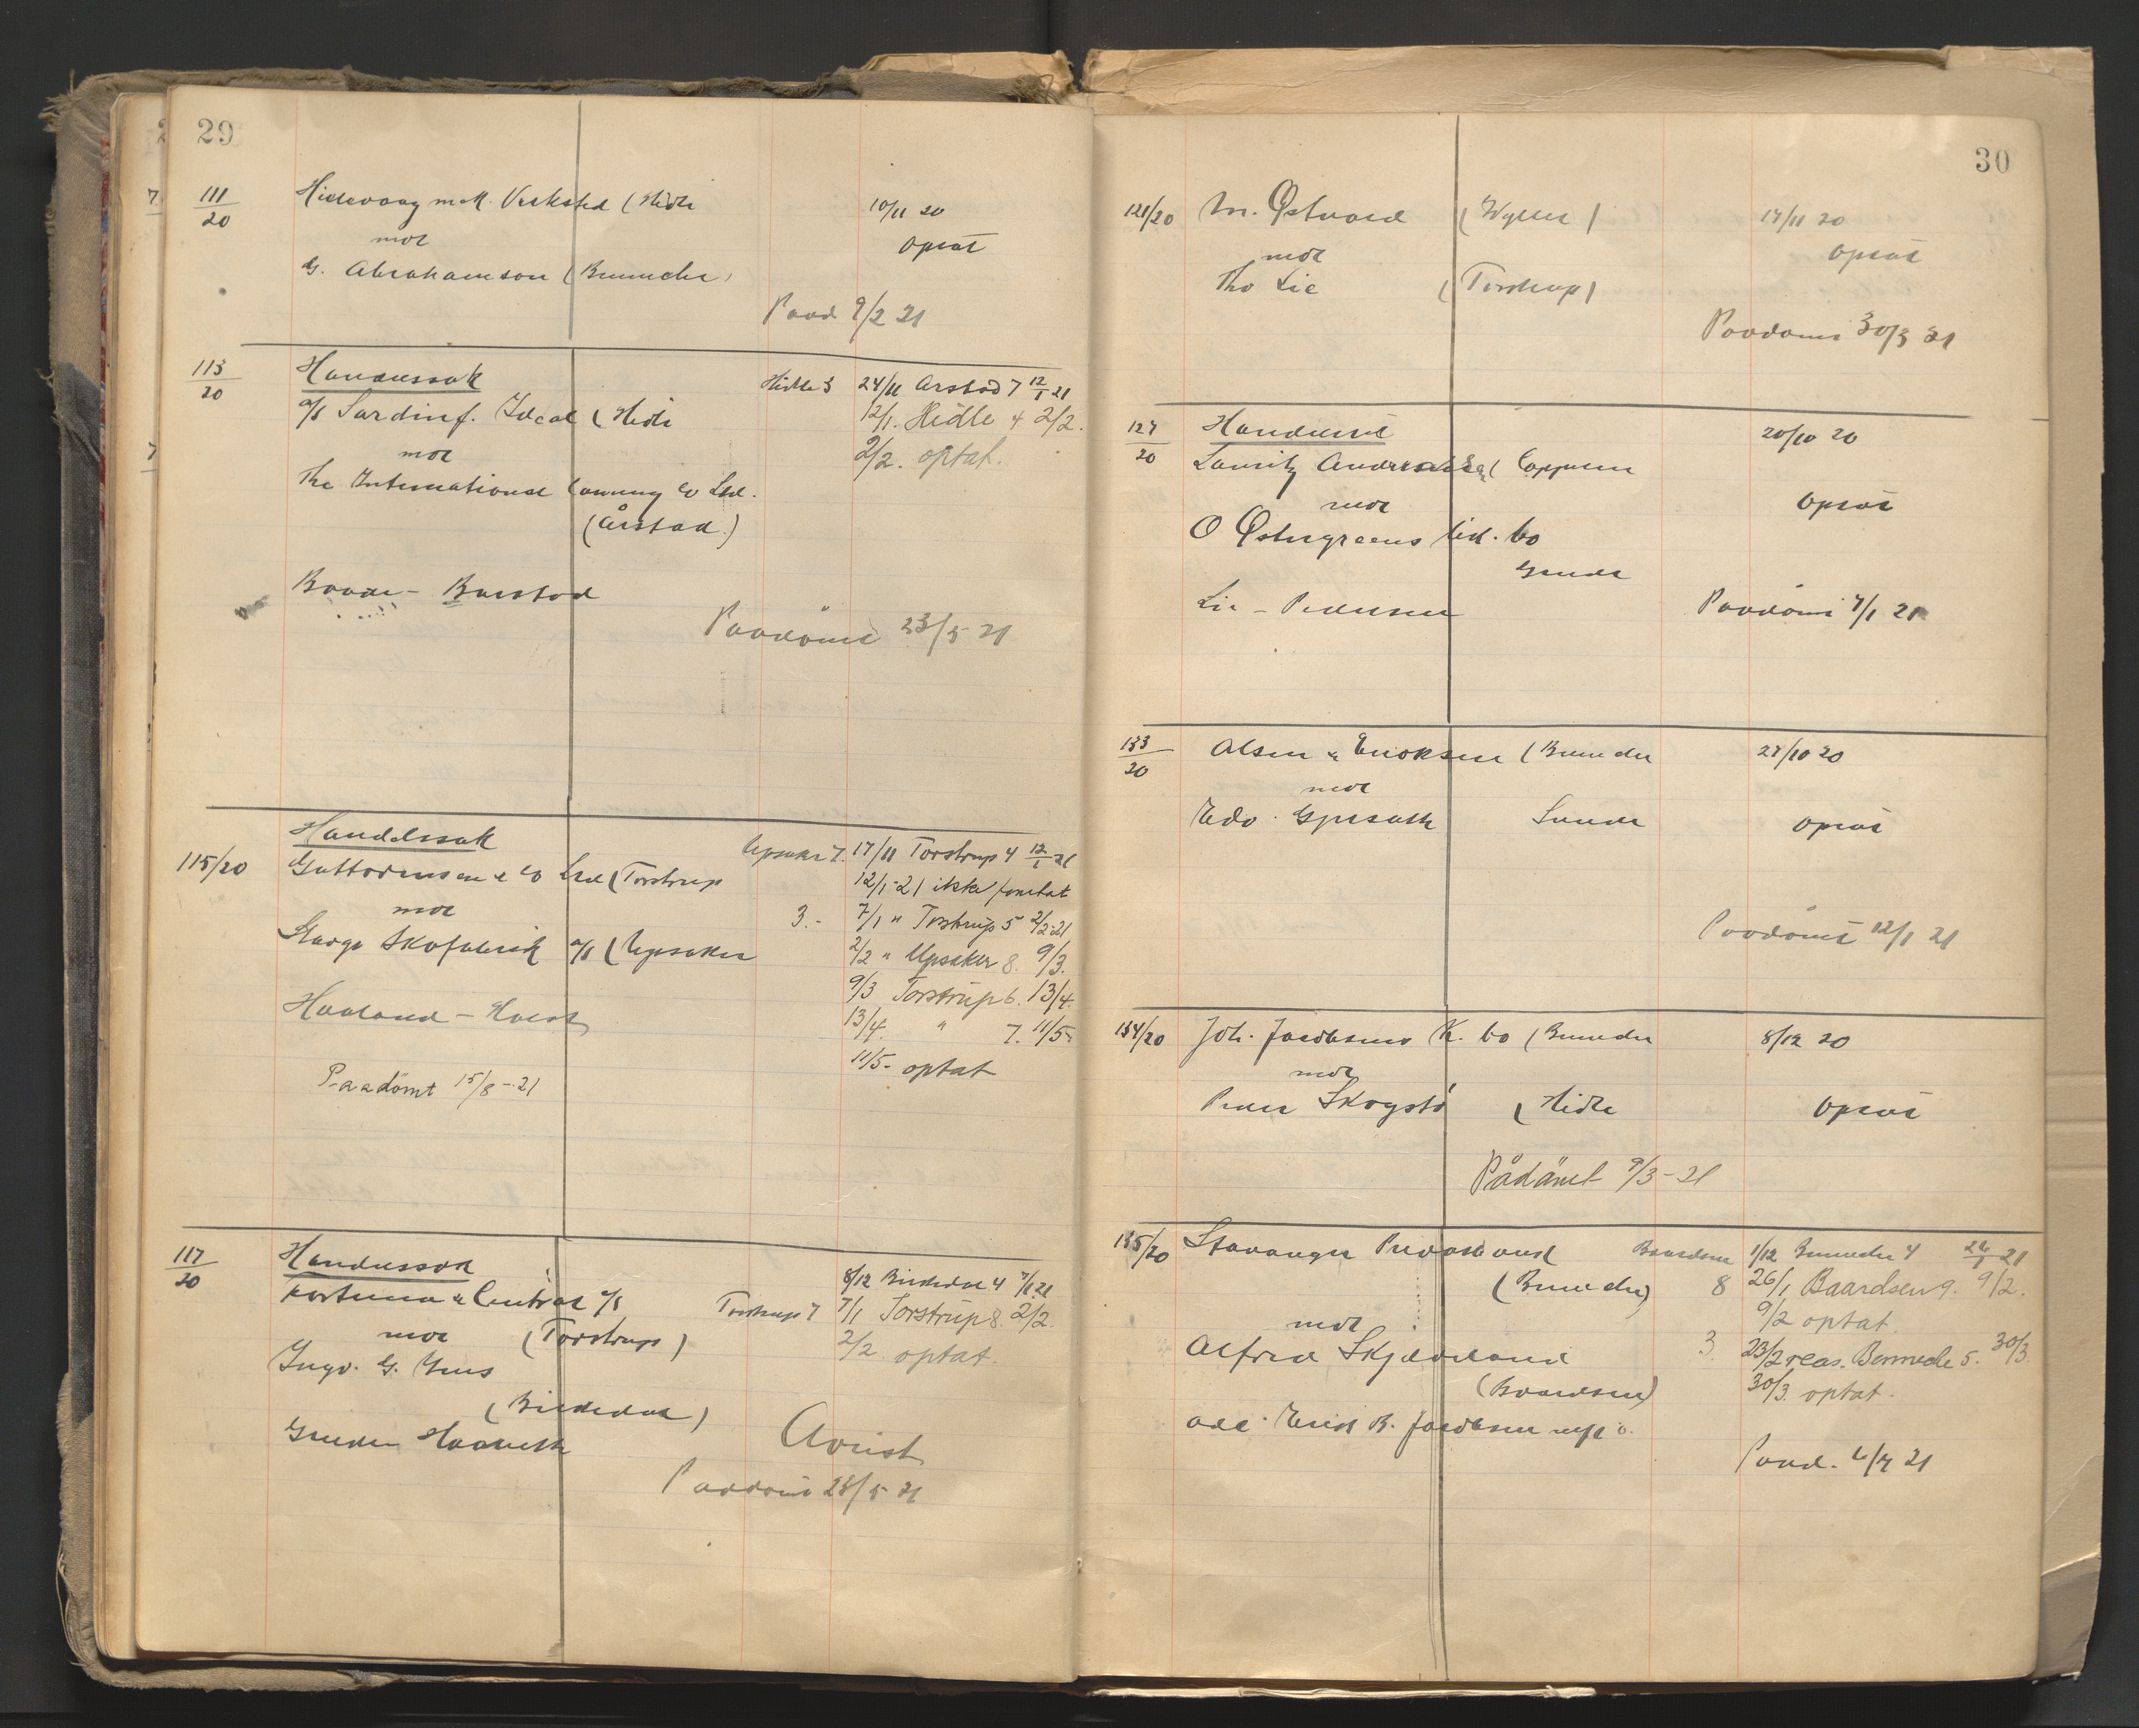 29
111/20 Hillevaag mek. Verksted (Hidle 10/11 20
mot optat
G. Abrahamson (Benneche)
Paad 9/2 21
113/20 Handelssak Hidle 3 24/11 Årstad 7 12/1 21
a/s Sardinf. Ideal (Hidle 12/1. Hidle 4 2/2.
mot 2/2. optat.
The International Canning Co Ltd.
(Årstad.)
Baade - Barstad
Paadømt 23/5 21
Handelssak Opsaker 7. 17/11 Torstrup 4 12/1 21
115/20 Guttormsen & Co Ltd (Torstrup 12/1-21 ikke
mot 3.- 7/1 " Torstrup 5 2/2-21
Skofabrik a/s (Opsaker 2/2 " Opsaker 8. 9/3.
9/3 Torstrup 6. 13/4.
Haaland - Holst 13/4. " 7. 11/5
11/5- optat
Paadömt 15/8-21
117/20 Handelssak
Fortuna & Central a/s 8/12 Birkedal 4 7/1 21
mot (Torstrup) Torstrup 7 7/1 Torstrup 8. 2/2.
Ingv. G. Jens 2/2 optat.
(Birkedal)
Avvist
Paadömt 23/5 21
30
121/20 M. Østvold (Wyller) 17/11 20
mot optat
Tho Lie (Torstrup)
Paadömt 30/3 21
127/20 20/10 20
Lauritz Andersen
mot optat
O Østergreens lik. bo
Lie - Pedersen Paadömt 7/1 21
133/20 Olsen & Enoksen (Benneche 27/10 20
mot
Edv. Sunde optat
Paadömt 12/1 21
134/20 Joh. Jacobsens K. bo (Benneche 8/12 20
mot
Peder Skogstö (Hidle optat
Pådömt 9/3-21
135/20 Stavanger Privatbank Baardsen 1/12 Benneche 4 26/1 21
(Benneche) 8 26/1 Baardsen 9. 9/2.
9/2 optat.
mot 3. 23/2 reas. Benneche 5. 30/3
Alfred Skjæveland 30/3. optat.
(Baardsen)
B. Jacobsen
Paad. 6/4 21